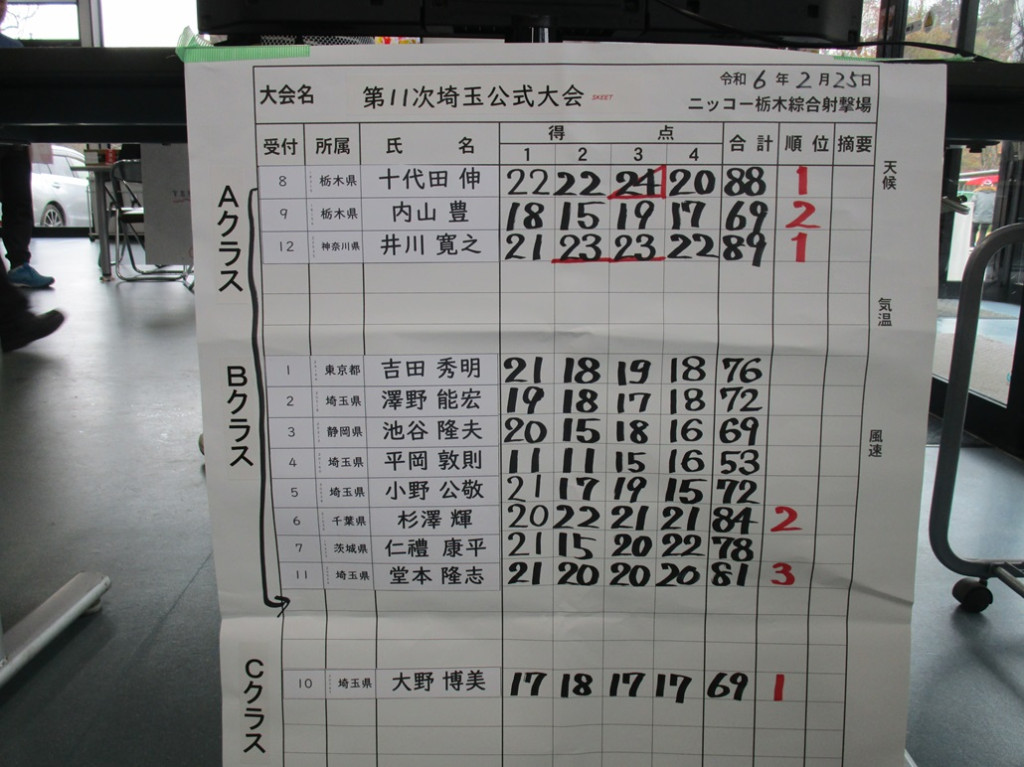 大会名 第11次埼玉公式大会 SKEET 令和 6 年 2 月 25 日
ニッコー栃木綜合射撃場
受付 所属 氏 名 得 点 合計 順位 摘要
1 2 3 4
天候
Aクラス
8 栃木県 十代田 伸 22 22 24 20 88 1
9 栃木県 内山 豊 18 15 19 17 69 2
12 神奈川県 井川 寛之 21 23 23 22 89 1
気温
Bクラス
1 東京都 吉田 秀明 21 18 19 18 76
2 埼玉県 澤野 能宏 19 18 17 18 72
3 静岡県 池谷 隆夫 20 15 18 16 69
風速
4 埼玉県 平岡 敦則 11 11 15 16 53
5 埼玉県 小野 公敬 21 17 19 15 72
6 千葉県 杉澤 輝 20 22 21 21 84 2
7 茨城県 仁禮 康平 21 15 20 22 78
11 埼玉県 堂本 隆志 21 20 20 20 81 3
Cクラス
10 埼玉県 大野 博美 17 18 17 17 69 1